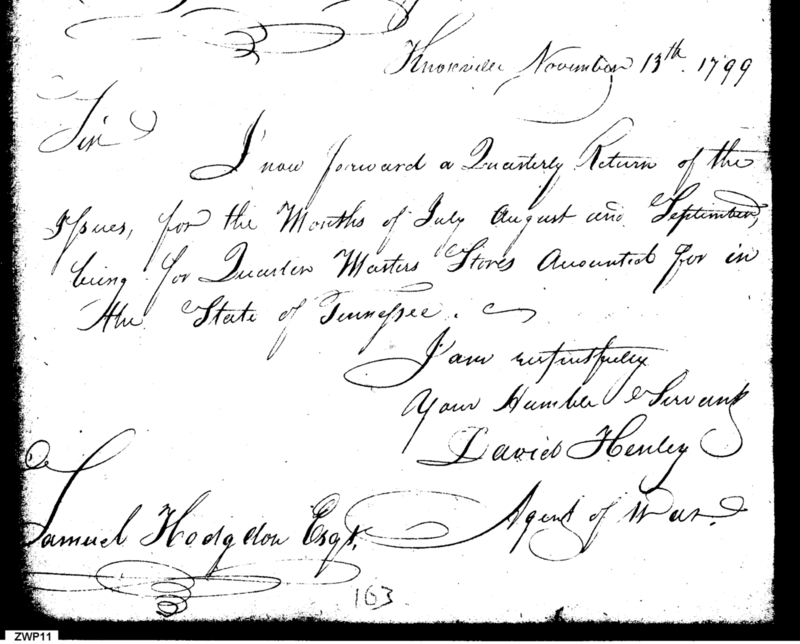 Knoxville November 13th. 1799
Sir
I now forward a Quarterly Return of the
Issues, for the Months of July August and September,
being for Quarter Masters Stores Accounted for in
the State of Tennessee.
I am respectfully
Your Humble Servant
David Henley
Agent of War.
Samuel Hodgdon Esqr.
163
ZWP11